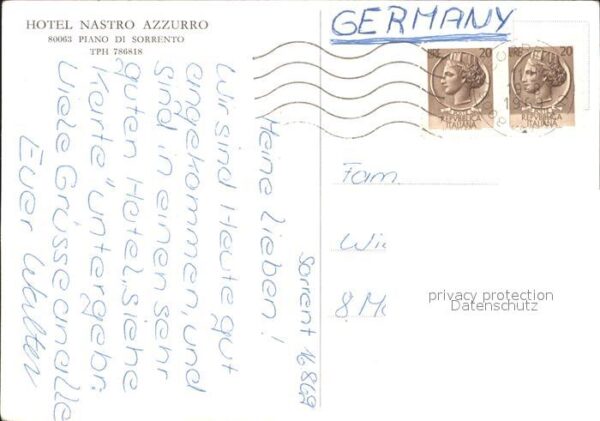 HOTEL NASTRO AZZURRO
80063 PIANO DI SORRENTO
TPH 786818
GERMANY
LIRE 20
REPVBBLICA
ITALIANA
LIRE 20
REPVBBLICA
ITALIANA
Sorrent 16.8.69
Meine Lieben!
Wir sind Heute gut
angekommen, und
sind in einen sehr
guten Hotel, siehe
Karte "untergebr.
Viele Grüsse an alle
Euer Walter
Fam.
Wi
8 M
privacy protection
Datenschutz